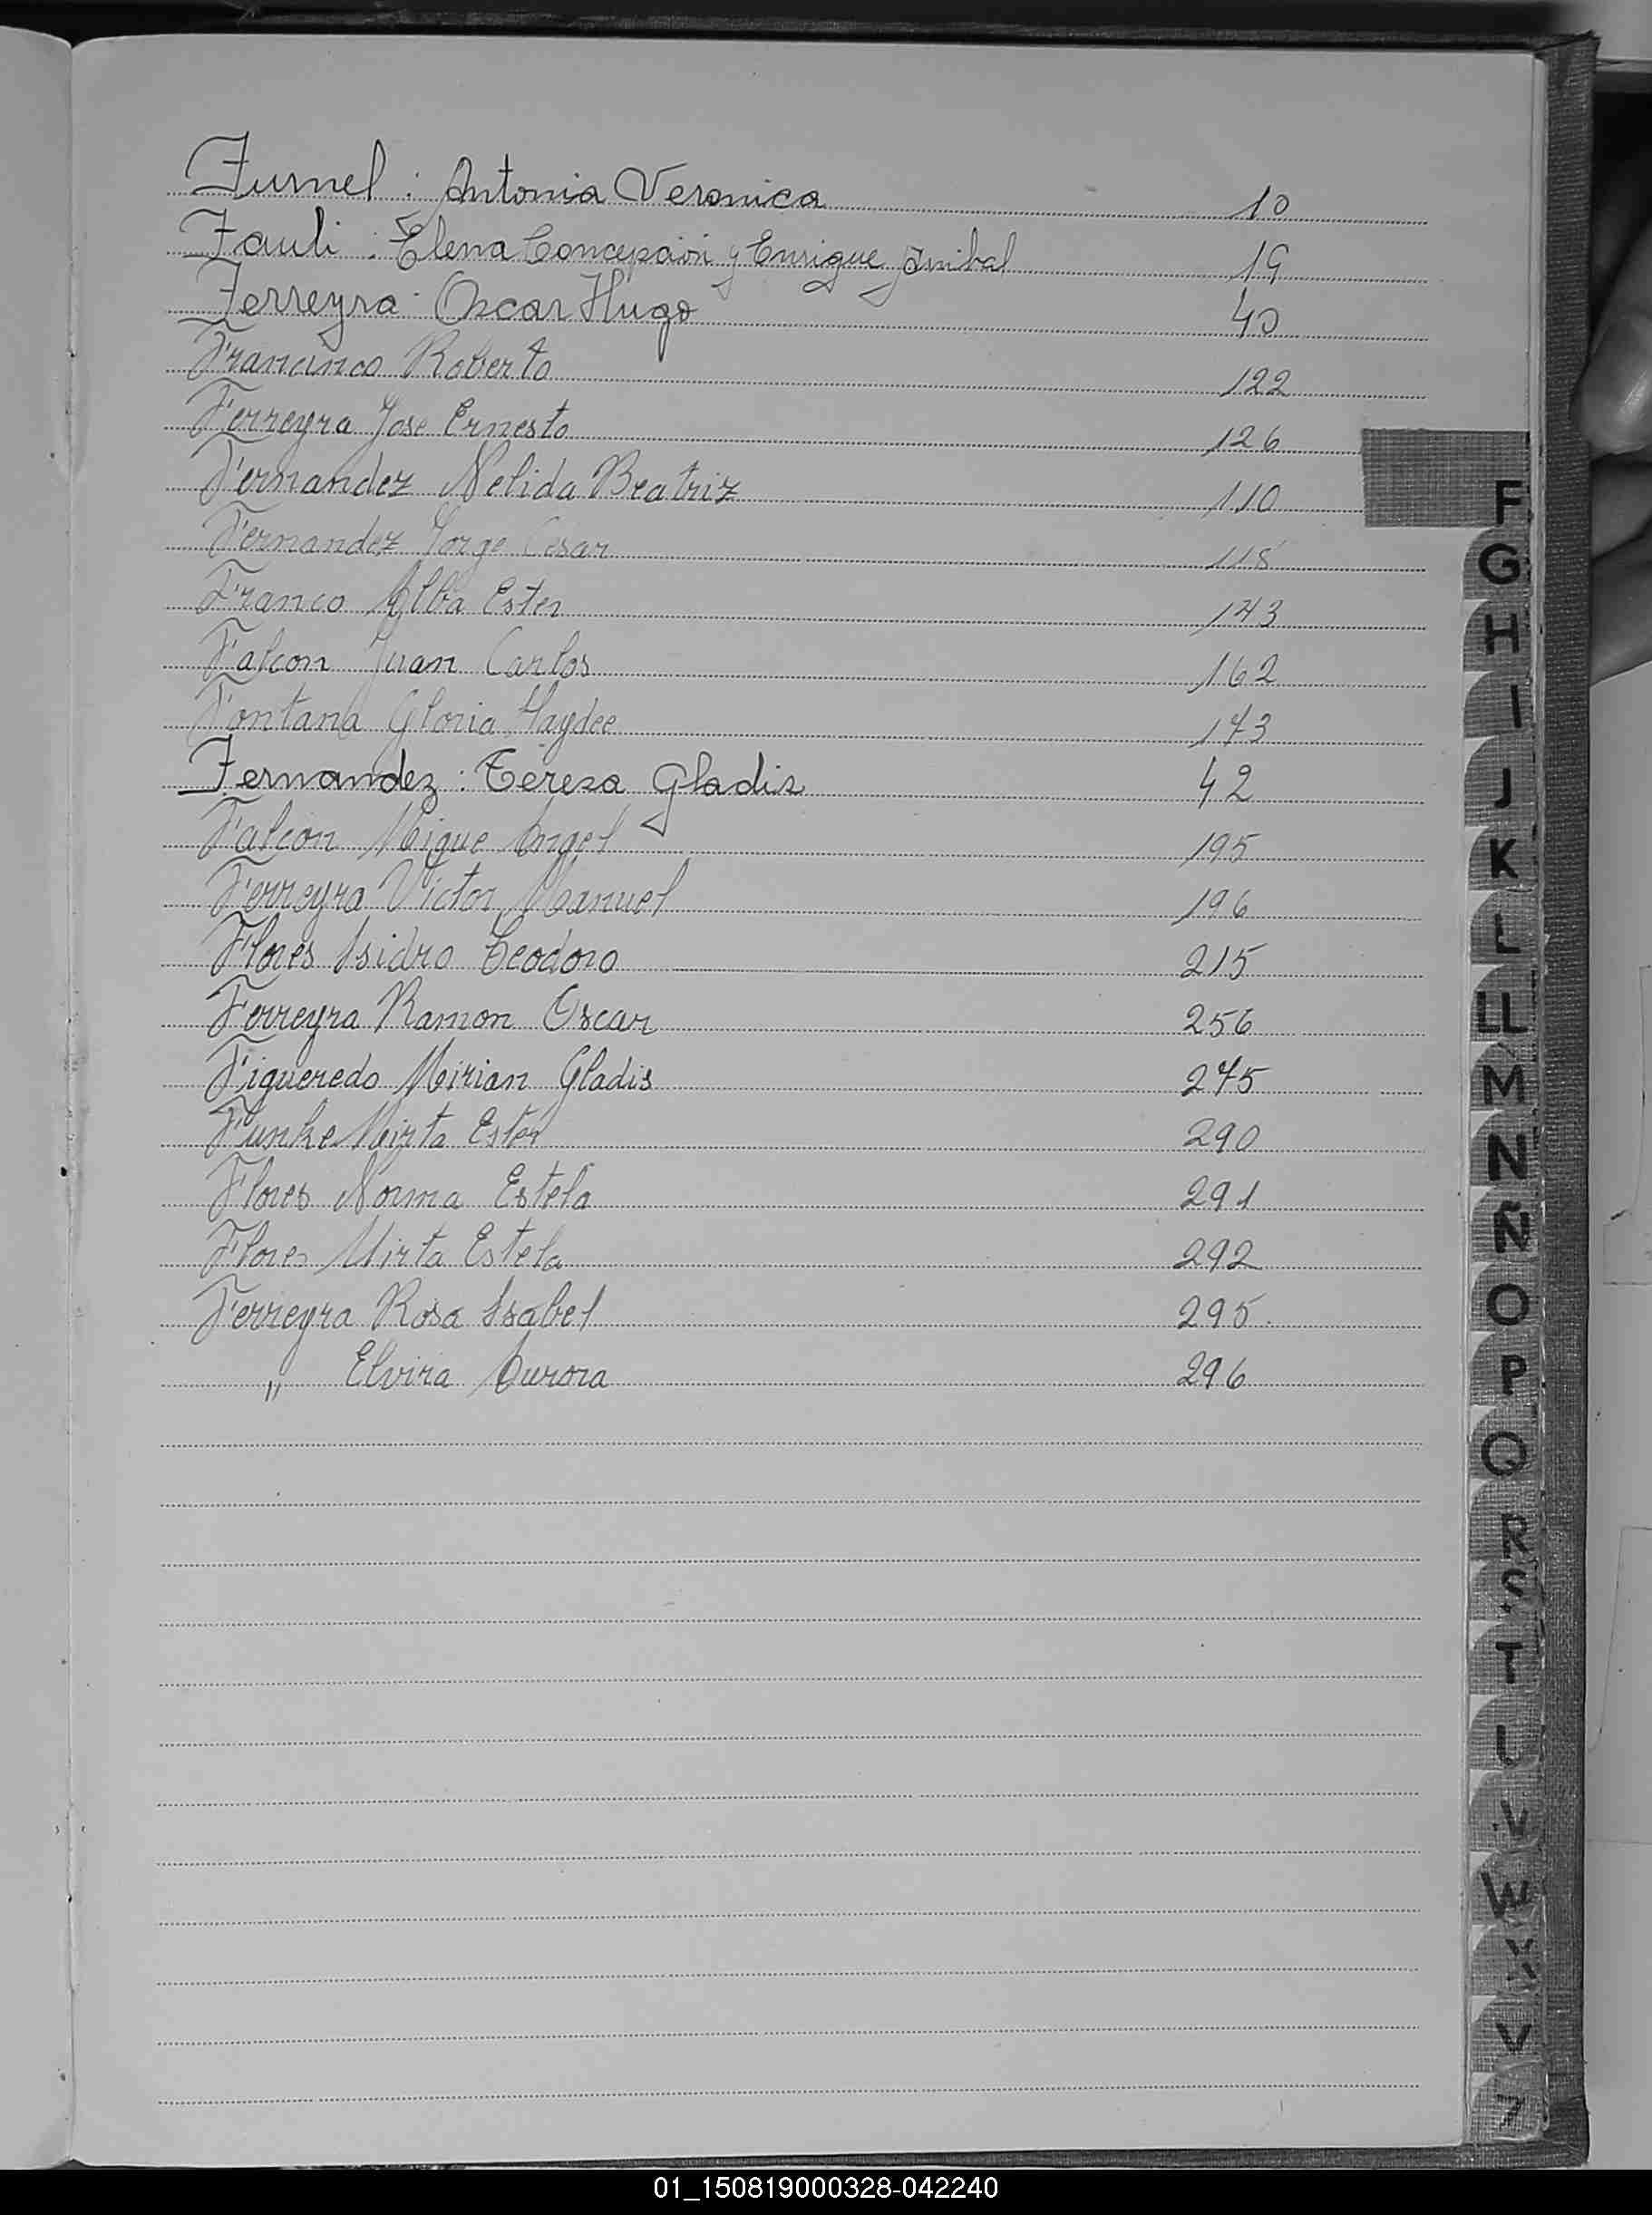 Furnel : Antonia Veronica 10
Fauli : Elena Concepción y Enrique Anibal 19
Ferreyra : Oscar Hugo 40
Francisco Roberto 122
Ferreyra Jose Ernesto 126
Fernandez Nelida Beatriz 110
Fernandez Jorge Cesar 118
Franco Alba Ester 143
Falcon Juan Carlos 162
Fontana Gloria Haydee 173
Fernandez : Teresa Gladis 42
Falcon Migue Angel 195
Ferreyra Victor Manuel 196
Flores Isidro Teodoro 215
Ferreyra Ramon Oscar 256
Figueredo Mirian Gladis 275
Funke Mirta Ester 290
Flores Norma Estela 291
Flores Mirta Estela 292
Ferreyra Rosa Isabel 295
" Elvira Aurora 296
F
G
H
I
J
K
L
LL
M
N
Ñ
O
P
Q
R
S
T
V
W
01_150819000328-042240